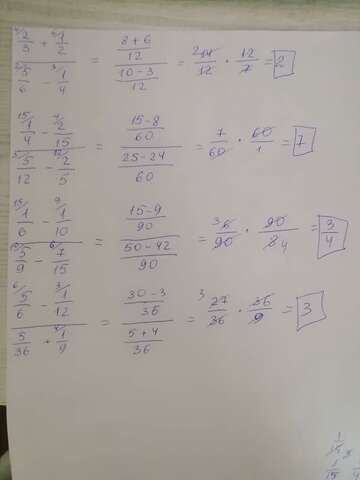 (⁴2/3 + ⁶1/2) / (²5/6 − ³1/4) = ((8+6)/12) / ((10−3)/12) = ²14/12 · 12/7 = 2
(¹⁵1/4 − ⁴2/15) / (⁵5/12 − ¹²2/5) = ((15−8)/60) / ((25−24)/60) = 7/60 · 60/1 = 7
(¹⁵1/6 − ⁹1/10) / (¹⁰5/9 − ⁶7/15) = ((15−9)/90) / ((50−42)/90) = ³6/90 · 90/8 4 = 3/4
(⁶5/6 − ³1/12) / (5/36 + ⁴1/9) = ((30−3)/36) / ((5+4)/36) = ³27/36 · 36/9 = 3
1/15
1/15